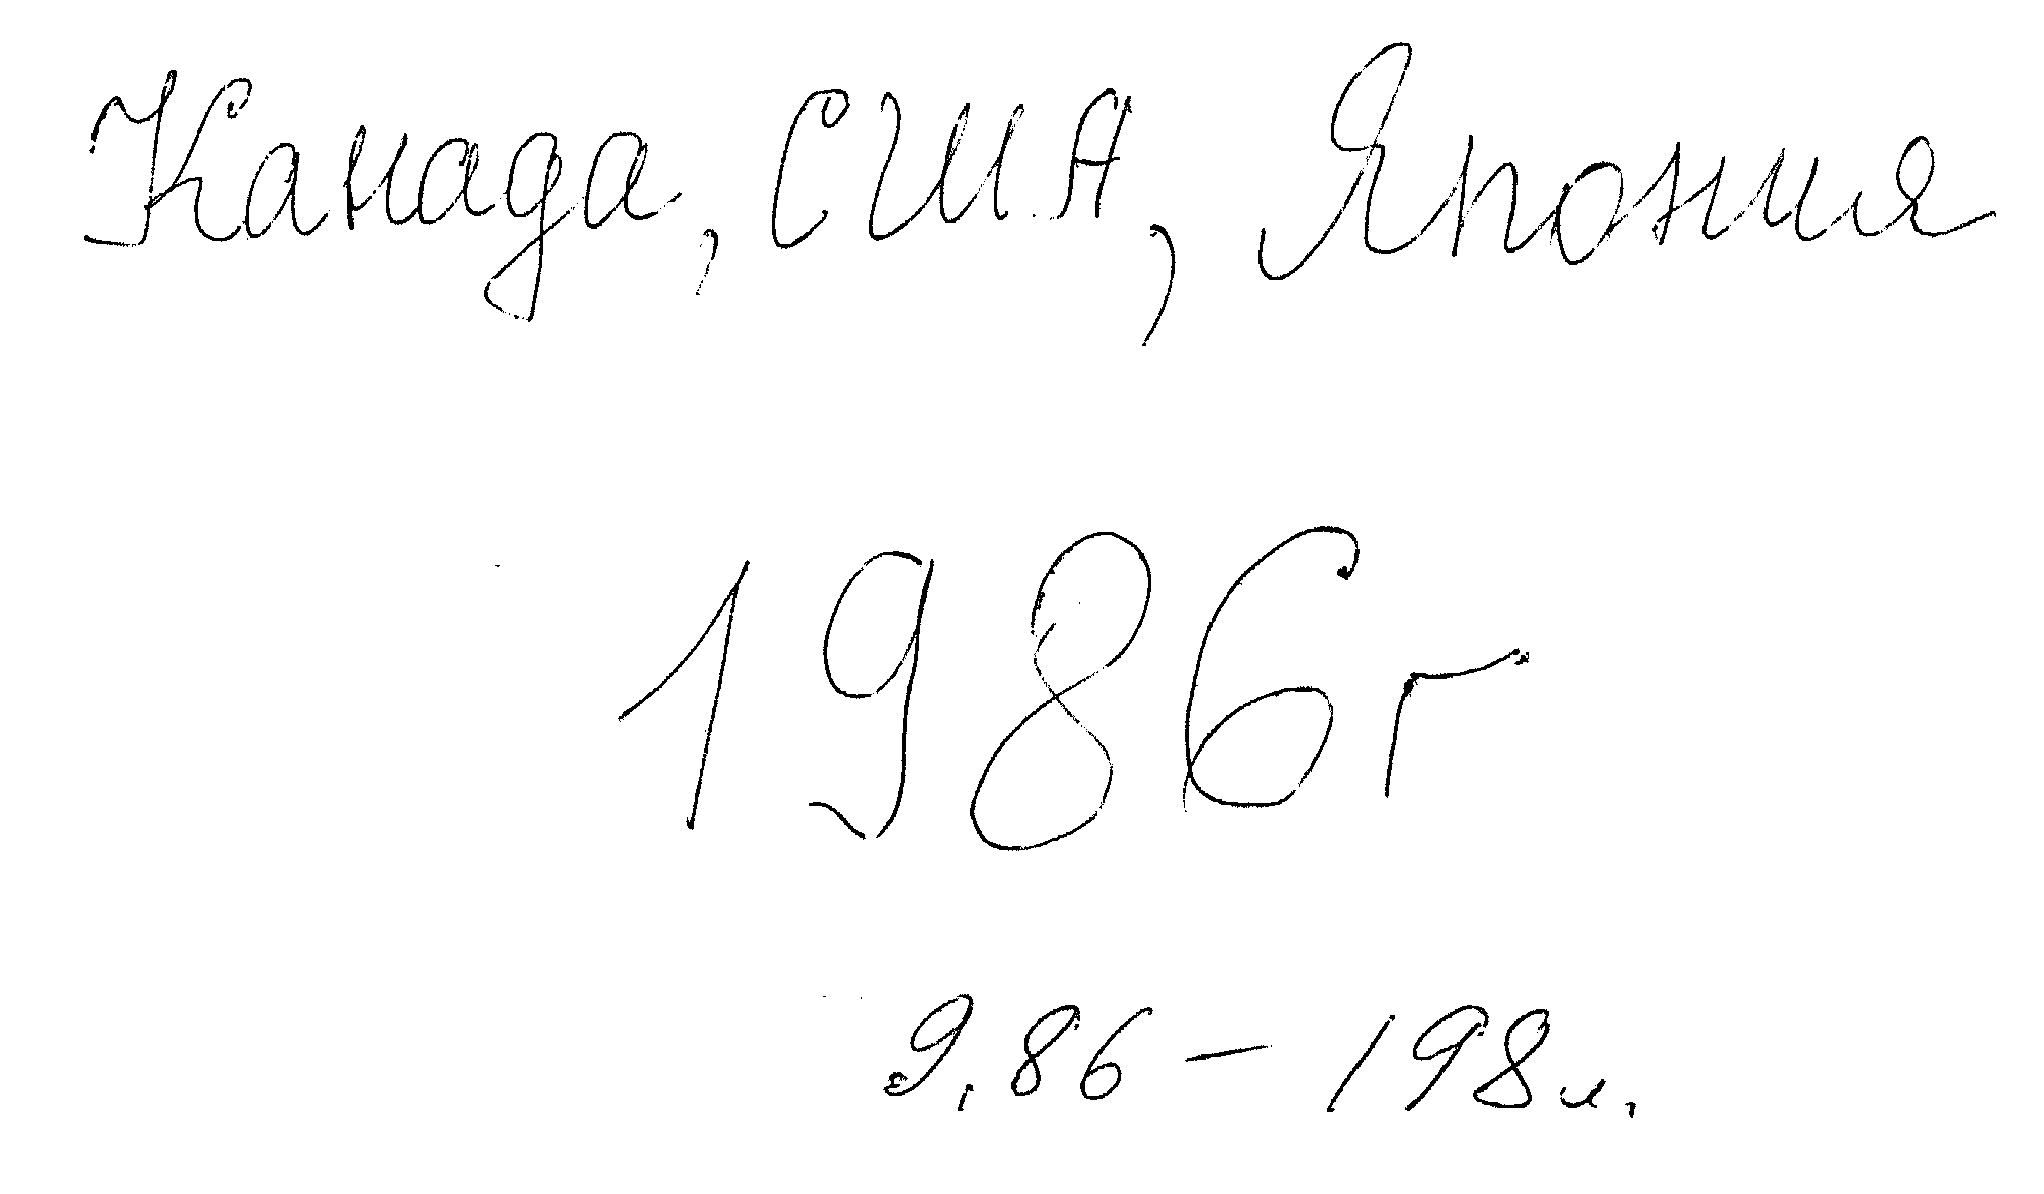 Канада, США, Япония
1986г
9,86 – 198л.